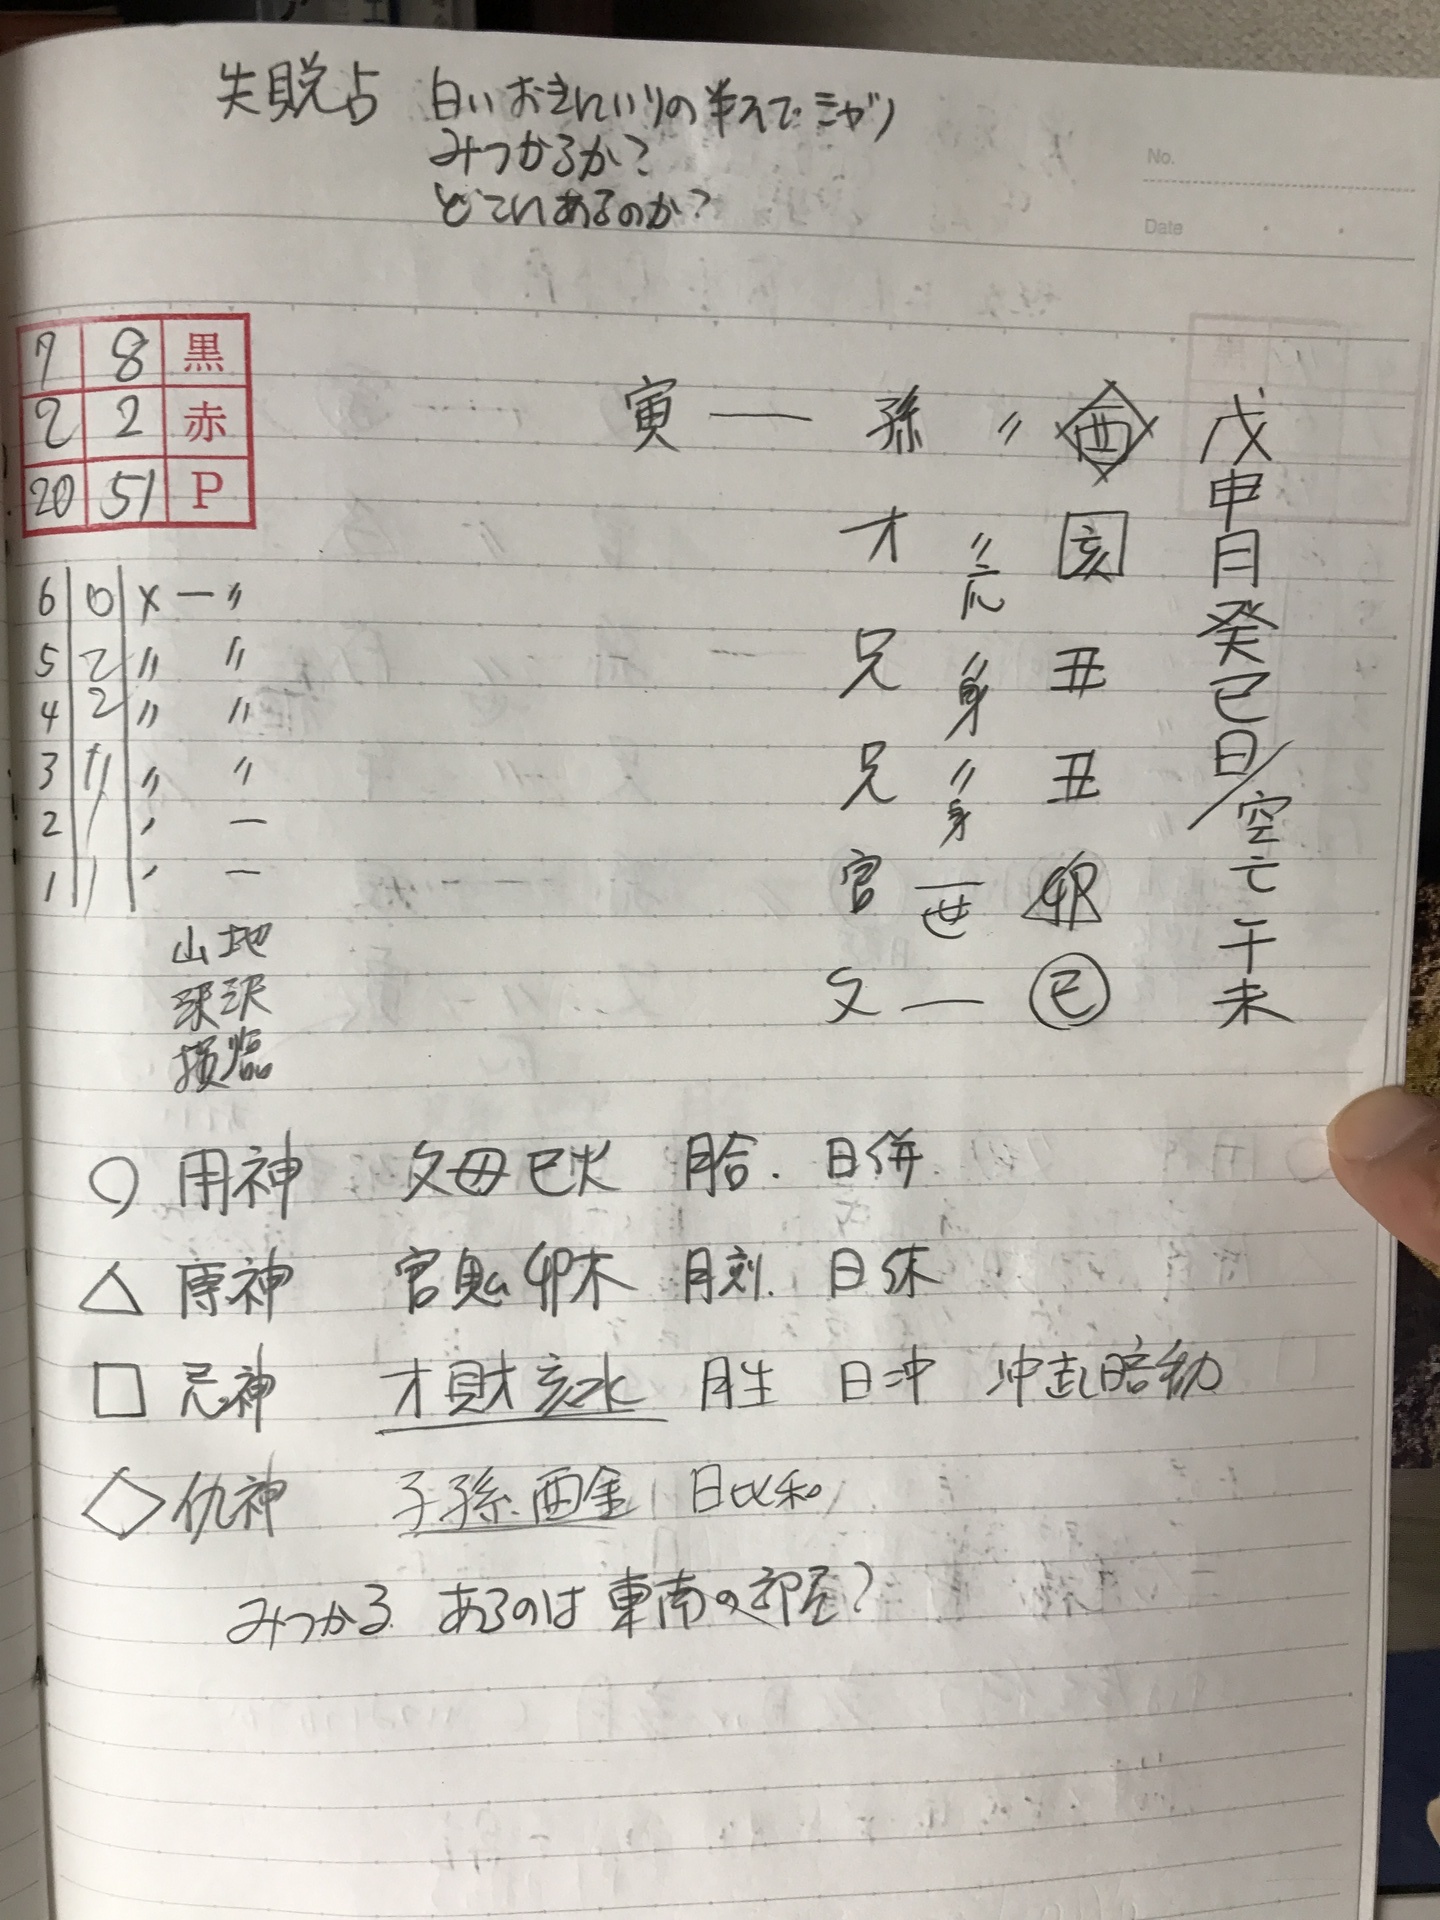 失脱占 白いおきにいりの半そでシャツ
みつかるか?
どこにあるのか?
No.
Date
7 8 黒
2 2 赤
20 51 P
寅 — 孫 〃 酉
才 〃 応 亥
兄 〃 身 丑
兄 〃 身 丑
官 — 世 卯
父 — 巳
戊申月癸巳日/空亡午未
6 0 × — 〃
5 2 〃 〃
4 2 〃 〃
3 〃 〃
2 1 ′ —
1 1 ′ —
山地
沢沢
損臨
○ 用神 父母巳火 月合. 日併
△ 原神 官鬼卯木 月剋. 日休
□ 忌神 才財亥水 月生 日冲 冲起暗動
◇ 仇神 子孫.酉金 日比和
みつかる あるのは東南の部屋?